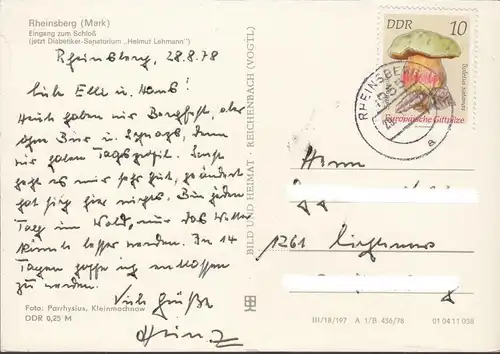 Rheinsberg (Mark)
Eingang zum Schloß
(jetzt Diabetiker-Sanatorium „Helmut Lehmann")
Rheinsberg, 28.8.78
Liebe Elli u. Hans!
Heute haben wir Bergfest, aber
ohne Bier u. Schnaps, denn
wir haben Tagesprofil. Sonst
geht es mir sehr gut, geändert
hat sich hier nichts. Bin jeden
Tag im Wald, nur das Wetter
könnte besser werden. In 14
Tagen hoffe ich entlassen
zu werden.
Viele Grüße
Heinz
Foto: Parrhysius, Kleinmachnow
DDR 0,25 M
BILD UND HEIMAT · REICHENBACH (VOGTL)
DDR 10
Boletus satanas
Europäische Giftpilze
RHEINSBERG
a
1261
III/18/197 A 1/B 436/78 01 04 11 038